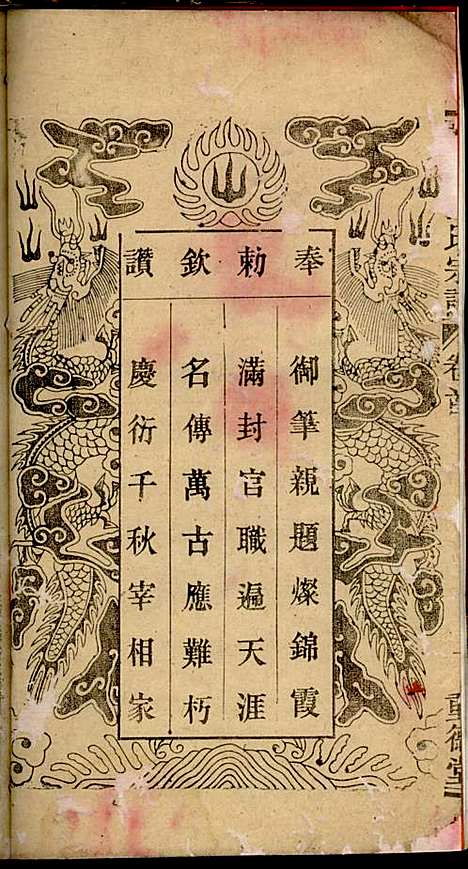 奉勅欽讚
御筆親題燦錦霞
滿封官職遍天涯
名傳萬古應難朽
慶衍千秋宰相家
氏宗譜
卷首
重德堂